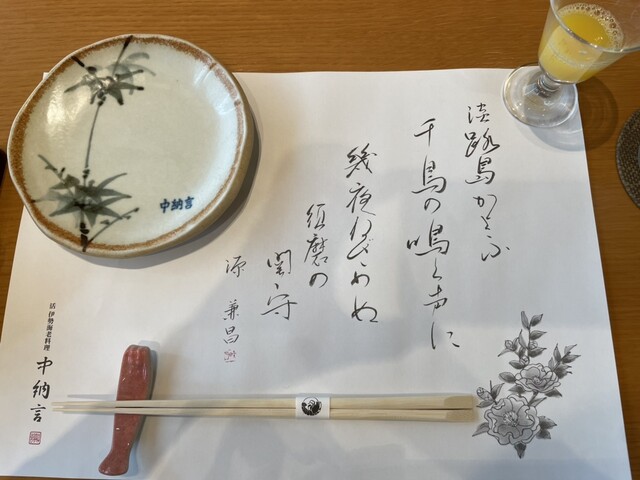 淡路島かよふ
千鳥の鳴く声に
幾夜ねざめぬ
須磨の
関守
源 兼昌
中納言
活 伊勢海老料理
中納言